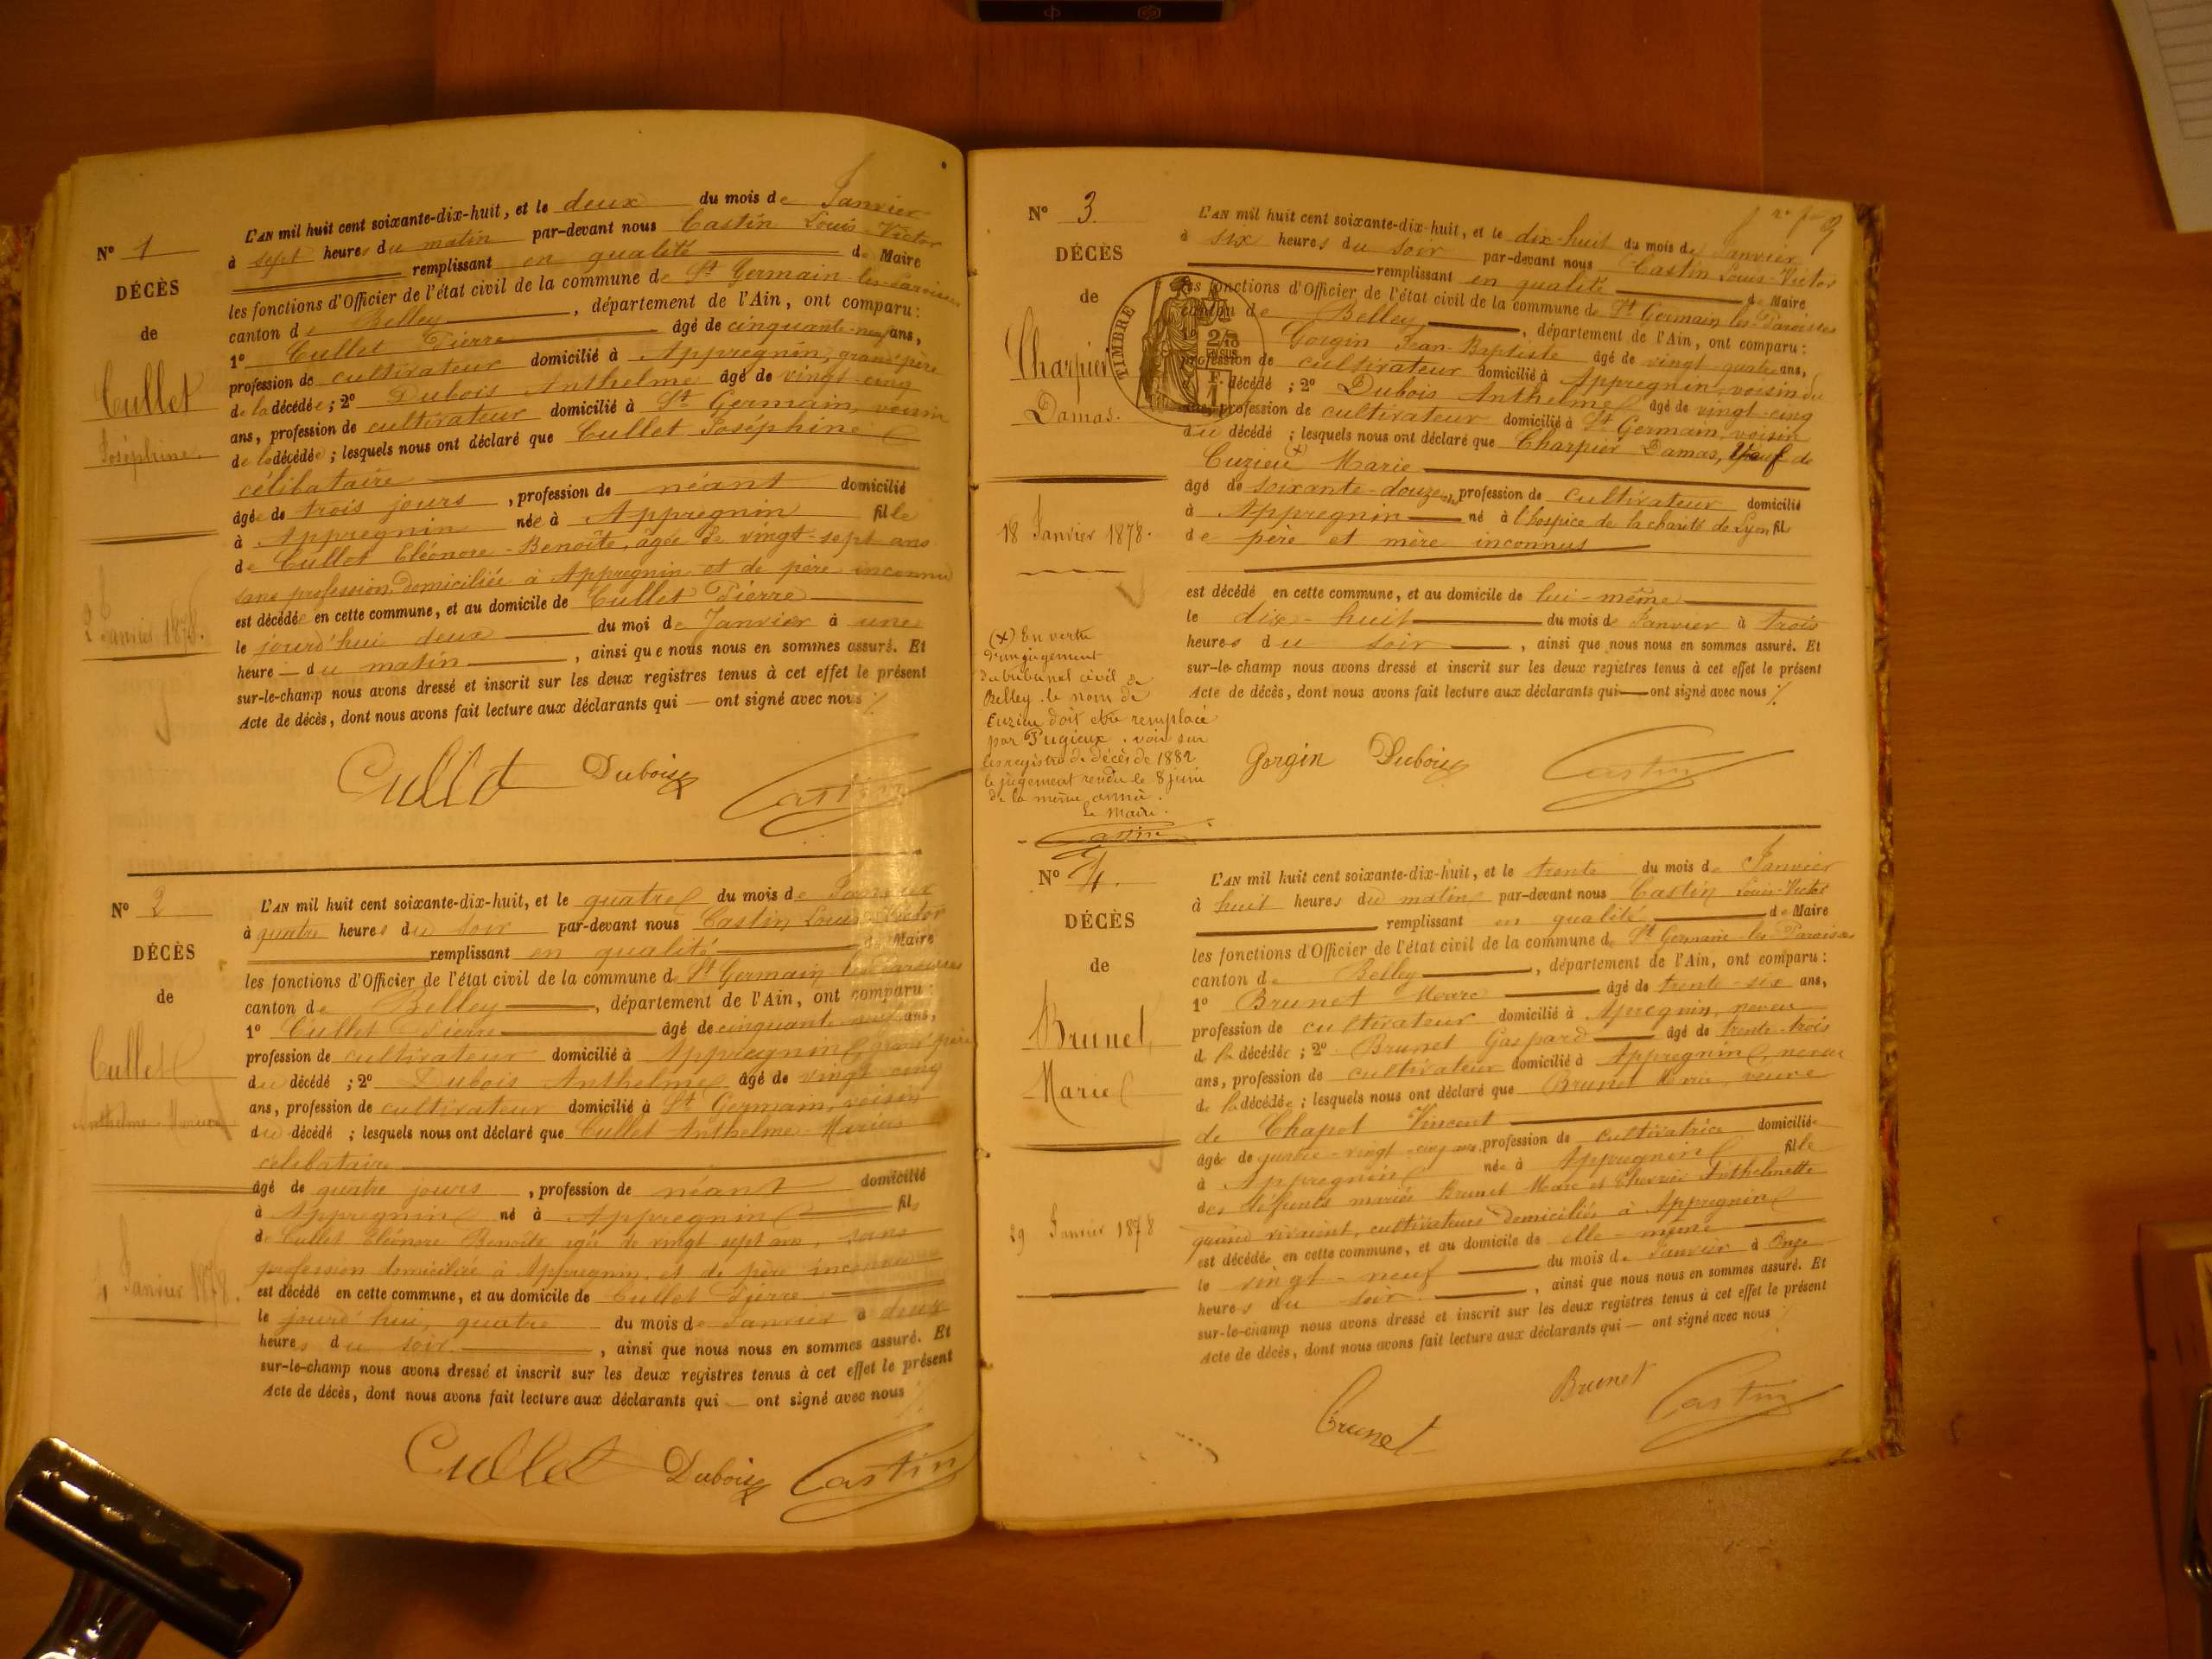 N° 1
DÉCÈS
de
Cullet
Joséphine.
2 Janvier 1878.
L'AN mil huit cent soixante-dix-huit, et le deux du mois de Janvier
à sept heures du matin par-devant nous Castin Louis-Victor
remplissant en qualité de Maire
les fonctions d'Officier de l'état civil de la commune de St Germain-les-Paroisses
canton de Belley, département de l'Ain, ont comparu:
1° Cullet Pierre âgé de cinquante-neuf ans,
profession de cultivateur domicilié à Appregnin, grand'père
de la décédée; 2° Dubois Anthelme âgé de vingt-cinq
ans, profession de cultivateur domicilié à St Germain, voisin
de la décédée; lesquels nous ont déclaré que Cullet Joséphine
célibataire
âgée de trois jours, profession de néant domicilié
à Appregnin née à Appregnin fille
de Cullet Eléonore-Benoîte, âgée de vingt-sept ans
sans profession domiciliée à Appregnin et de père inconnu
est décédée en cette commune, et au domicile de Cullet Pierre
le jourd'hui deux du moi de Janvier à une
heure du matin, ainsi que nous nous en sommes assuré. Et
sur-le-champ nous avons dressé et inscrit sur les deux registres tenus à cet effet le présent
Acte de décès, dont nous avons fait lecture aux déclarants qui — ont signé avec nous ⁒
Cullet Dubois Castin
N° 2
DÉCÈS
de
Cullet
Anthelme-Marius
4 Janvier 1878.
L'AN mil huit cent soixante-dix-huit, et le quatre du mois de Janvier
à quatre heures du soir par-devant nous Castin Louis-Victor
remplissant en qualité de Maire
les fonctions d'Officier de l'état civil de la commune de St Germain les Paroisses
canton de Belley, département de l'Ain, ont comparu:
1° Cullet Pierre âgé de cinquante-neuf ans,
profession de cultivateur domicilié à Appregnin grand'père
du décédé; 2° Dubois Anthelme âgé de vingt cinq
ans, profession de cultivateur domicilié à St Germain, voisin
du décédé; lesquels nous ont déclaré que Cullet Anthelme-Marius
célibataire
âgé de quatre jours, profession de néant domicilié
à Appregnin né à Appregnin fils
de Cullet Eléonore Benoîte âgée de vingt sept ans, sans
profession domiciliée à Appregnin, et de père inconnu
est décédé en cette commune, et au domicile de Cullet Pierre
le jourd'hui, quatre du mois de Janvier à deux
heures du soir, ainsi que nous nous en sommes assuré. Et
sur-le-champ nous avons dressé et inscrit sur les deux registres tenus à cet effet le présent
Acte de décès, dont nous avons fait lecture aux déclarants qui — ont signé avec nous
Cullet Dubois Castin
N° 3.
DÉCÈS
de
Charpier
Damas.
18 Janvier 1878.
TIMBRE
2/10
EN SUS
F.
1
L'AN mil huit cent soixante-dix-huit, et le dix-huit du mois de Janvier
à six heures du soir par-devant nous Castin Louis-Victor
remplissant en qualité de Maire
les fonctions d'Officier de l'état civil de la commune de St Germain les Paroisses
canton de Belley, département de l'Ain, ont comparu:
Gorgin Jean-Baptiste âgé de vingt-quatre ans,
profession de cultivateur domicilié à Appregnin, voisin du
décédé; 2° Dubois Anthelme âgé de vingt-cinq
ans, profession de cultivateur domicilié à St Germain, voisin
du décédé; lesquels nous ont déclaré que Charpier Damas, veuf de
Cuzieu (x) Marie
âgé de soixante-douze ans, profession de cultivateur domicilié
à Appregnin né à l'hospice de la charité de Lyon fil
de père et mère inconnus
est décédé en cette commune, et au domicile de lui-même
le dix-huit du mois de Janvier à trois
heures du soir, ainsi que nous nous en sommes assuré. Et
sur-le-champ nous avons dressé et inscrit sur les deux registres tenus à cet effet le présent
Acte de décès, dont nous avons fait lecture aux déclarants qui — ont signé avec nous ⁒
(x) En vertu
d'un jugement
du tribunal civil de
Belley. le nom de
Cuzieu doit être remplacé
par Pugieux. voir sur
les registre de décès de 1882
le jugement rendu le 8 juin
de la même année.
Le Maire.
Castin
Gorgin Dubois Castin
N° 4.
DÉCÈS
de
Brunet
Marie
29 Janvier 1878
L'AN mil huit cent soixante-dix-huit, et le trente du mois de Janvier
à huit heures du matin par-devant nous Castin Louis-Victor
remplissant en qualité de Maire
les fonctions d'Officier de l'état civil de la commune de St Germain les Paroisses
canton de Belley, département de l'Ain, ont comparu:
1° Brunet Marc âgé de trente-six ans,
profession de cultivateur domicilié à Apregnin, neveu
de la décédée; 2° Brunet Gaspard âgé de trente-trois
ans, profession de cultivateur domicilié à Appregnin, neveu
de la décédée; lesquels nous ont déclaré que Brunet Marie, veuve
de Chapot Vincent
âgée de quatre-vingt-cinq ans, profession de cultivatrice domiciliée
à Appregnin née à Appregnin fille
des défunts mariés Brunet Marc et Chervier Anthelmette
quand vivaient, cultivateurs domiciliés à Appregnin
est décédée en cette commune, et au domicile de elle-même
le vingt-neuf du mois de Janvier à Onze
heures du soir, ainsi que nous nous en sommes assuré. Et
sur-le-champ nous avons dressé et inscrit sur les deux registres tenus à cet effet le présent
Acte de décès, dont nous avons fait lecture aux déclarants qui — ont signé avec nous
Brunet Brunet Castin